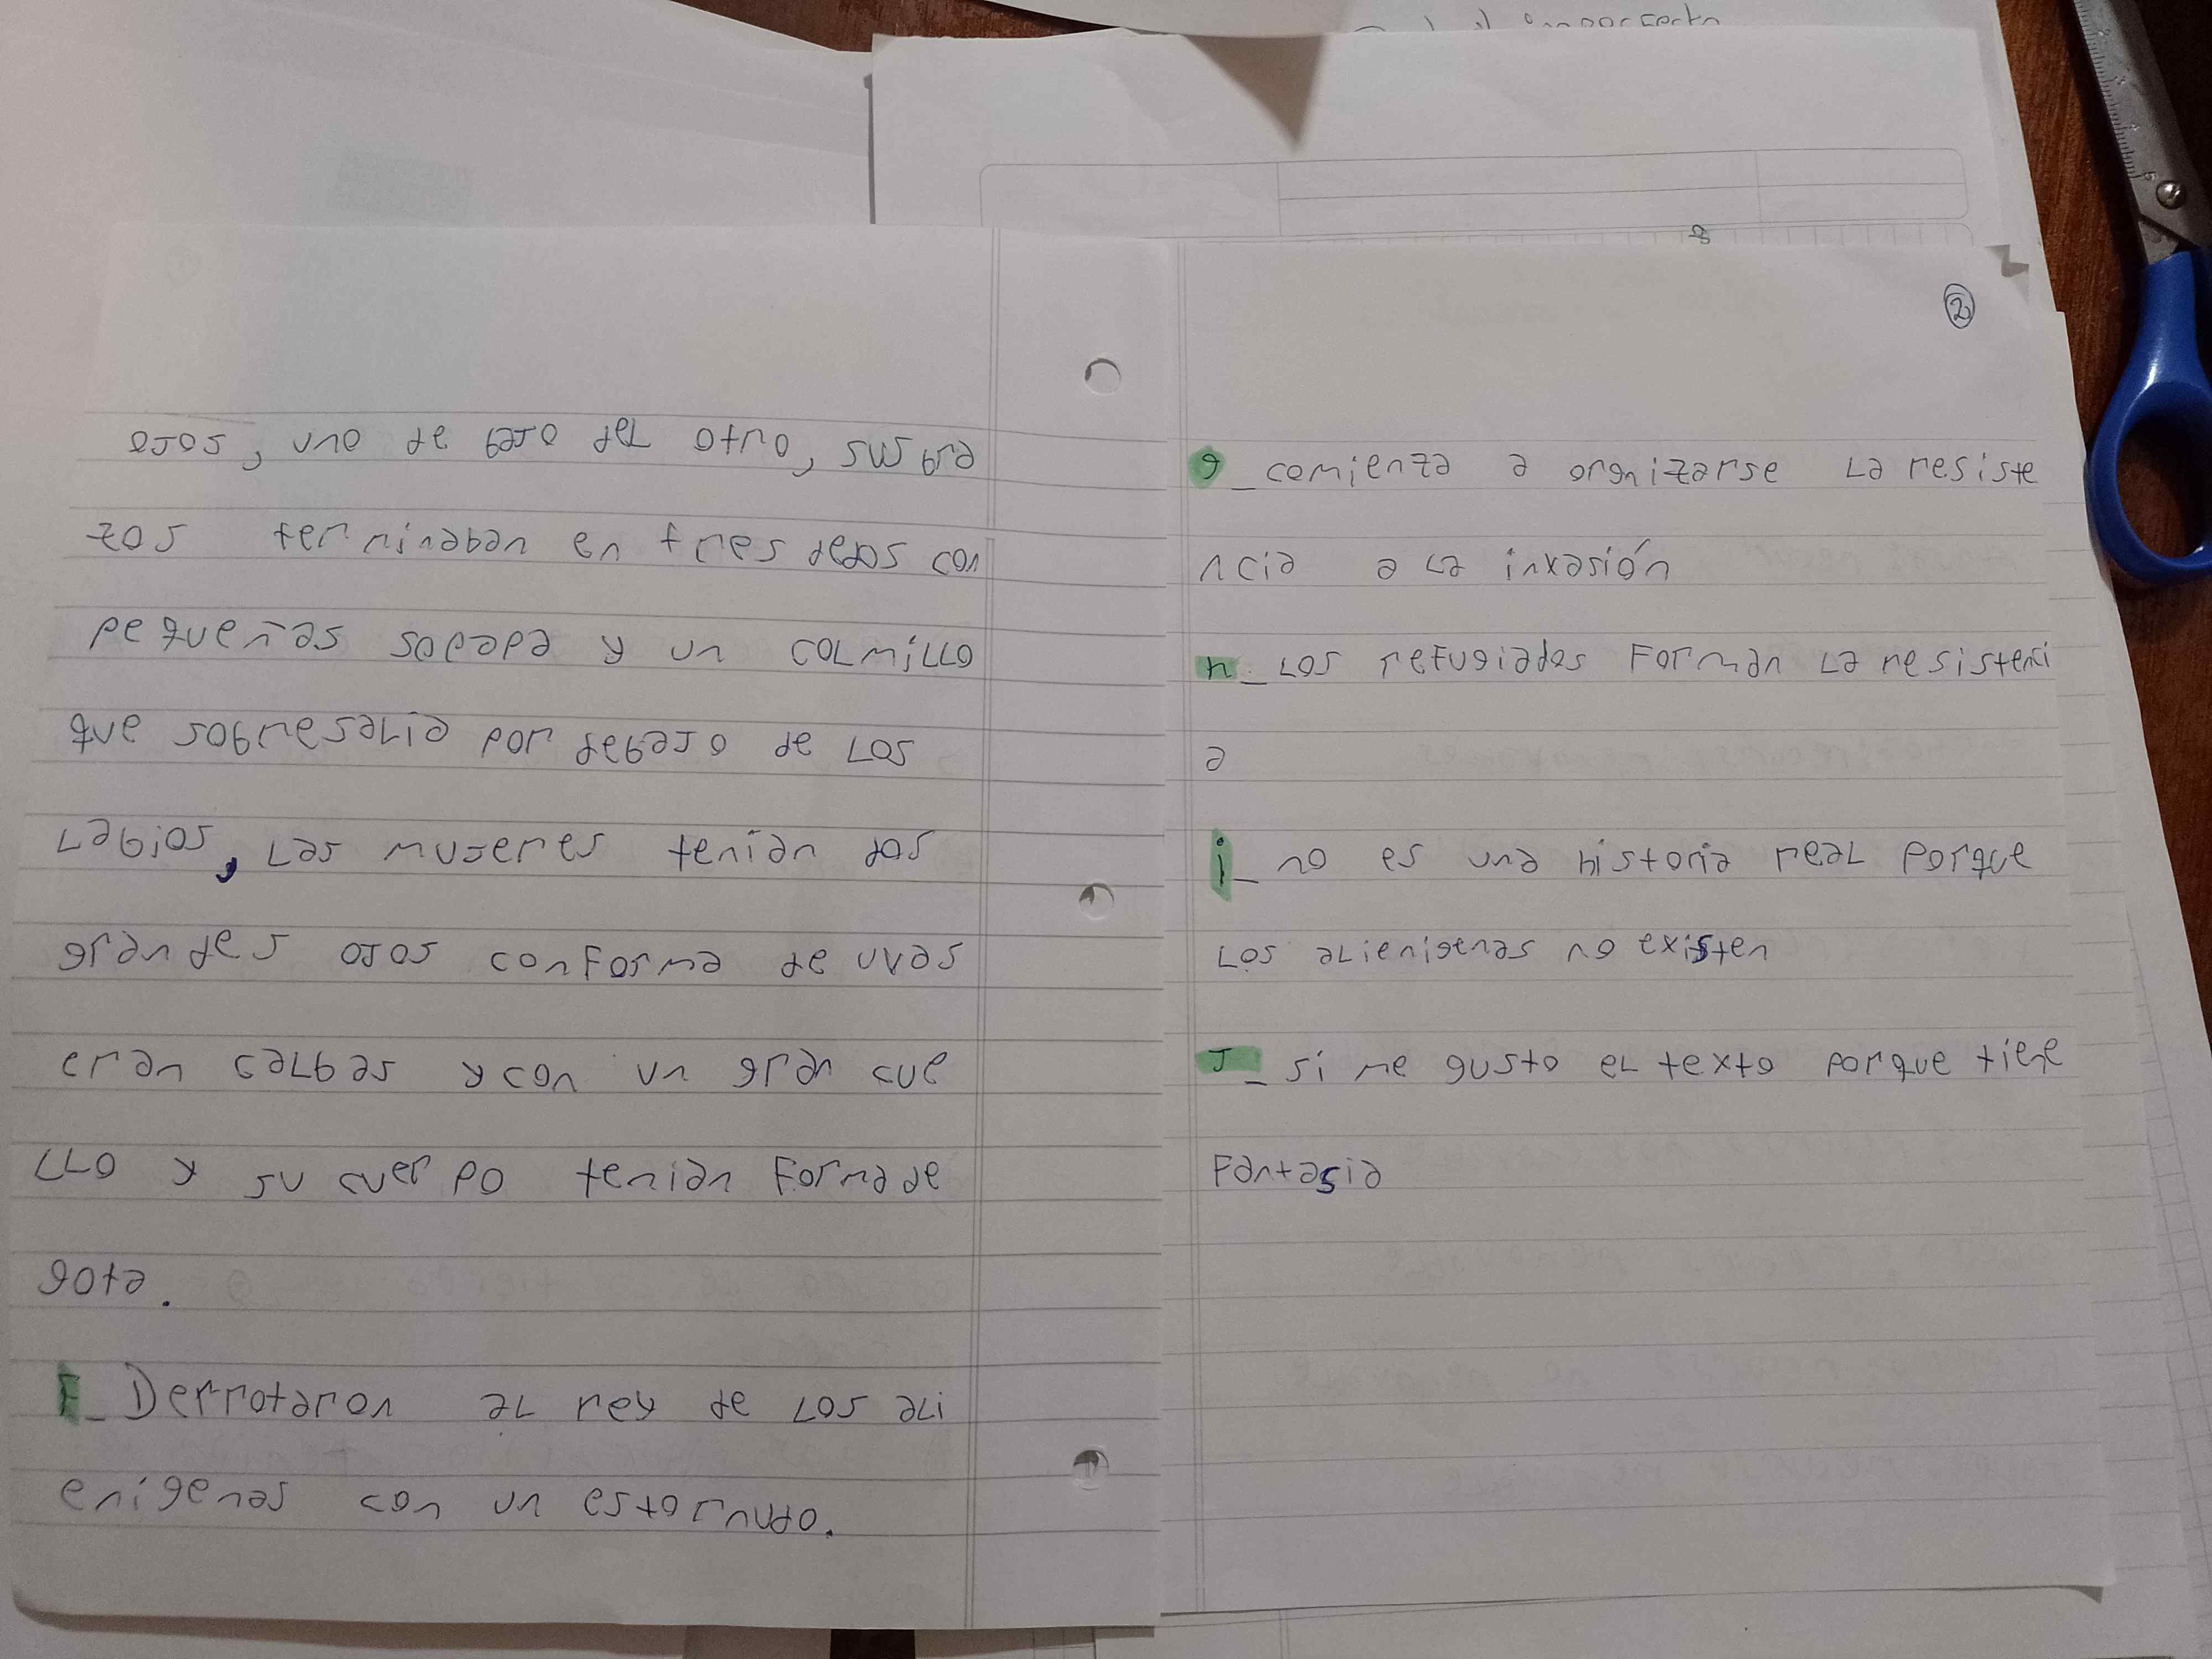 ojos, uno de bajo del otro, sus bra
zos terminaban en tres dedos con
pequeñas sopapa y un colmillo
que sobresalia por debajo de los
labios, las mujeres tenían dos
grandes ojos conforma de uvas
eran calbas y con un gran cue
llo y su cuerpo tenian forma de
gota.
F_ Derrotaron al rey de los ali
enígenas con un estornudo.
2
g_ comienza a orgnizarse la resiste
ncia a la invasión
h_ los refugiados forman la resistenci
a
i_ no es una historia real porque
los alienigenas no existen
J_ si me gusto el texto porque tiene
Fantasia